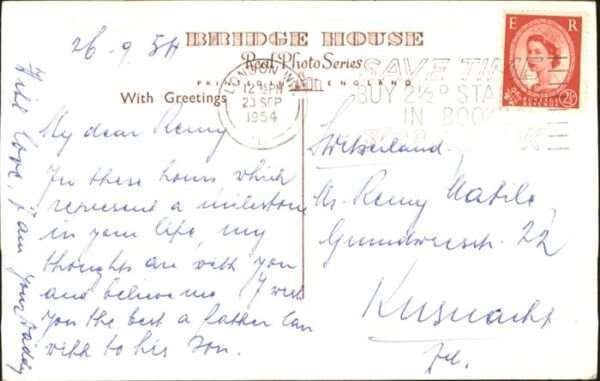 26.9.54
BRIDGE HOUSE
Real Photo Series
PRINTED IN ENGLAND
With Greetings
E R
LONDON
12 PM
23 SEP
1954
SAVE TIME
BUY 2½D STA
IN BOO
My dear Remy
In these hours which
represent a milestone
in your life, my
thoughts are with you
and believe me I wish
you the best a father can
wish to his son.
With love, I am your Daddy
Switzerland
Mr. Remy
22
Kusnacht